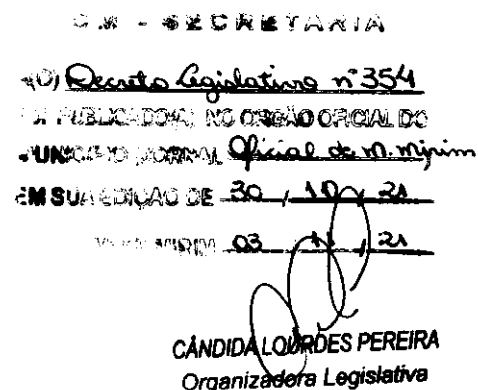 C.M - SECRETARIA
(O) Decreto Legislativo nº 354
PUBLICADO(A) NO ORGÃO OFICIAL DO
MUNICIPIO (JORNAL Oficial de M. Mirim
EM SUA EDIÇÃO DE 30 / 10 / 21
MIRIM 03 / 11 / 21
CÂNDIDA LOURDES PEREIRA
Organizadora Legislativa